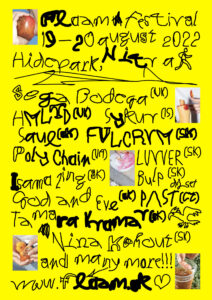 festival
19–20 august 2022
Hidepark, Nitra
Sega Bodega (UK)
HMLTD (UK)
FULCRVM (SK)
Poly Chain (UA) LUVVER (SK)
Isama Zing (SK) Bulp (SK)
dj-set
God and Eve (SK) PAST (CZ)
Tamara Kramar (SK)
Nina Kohout (SK)
and many more!!!